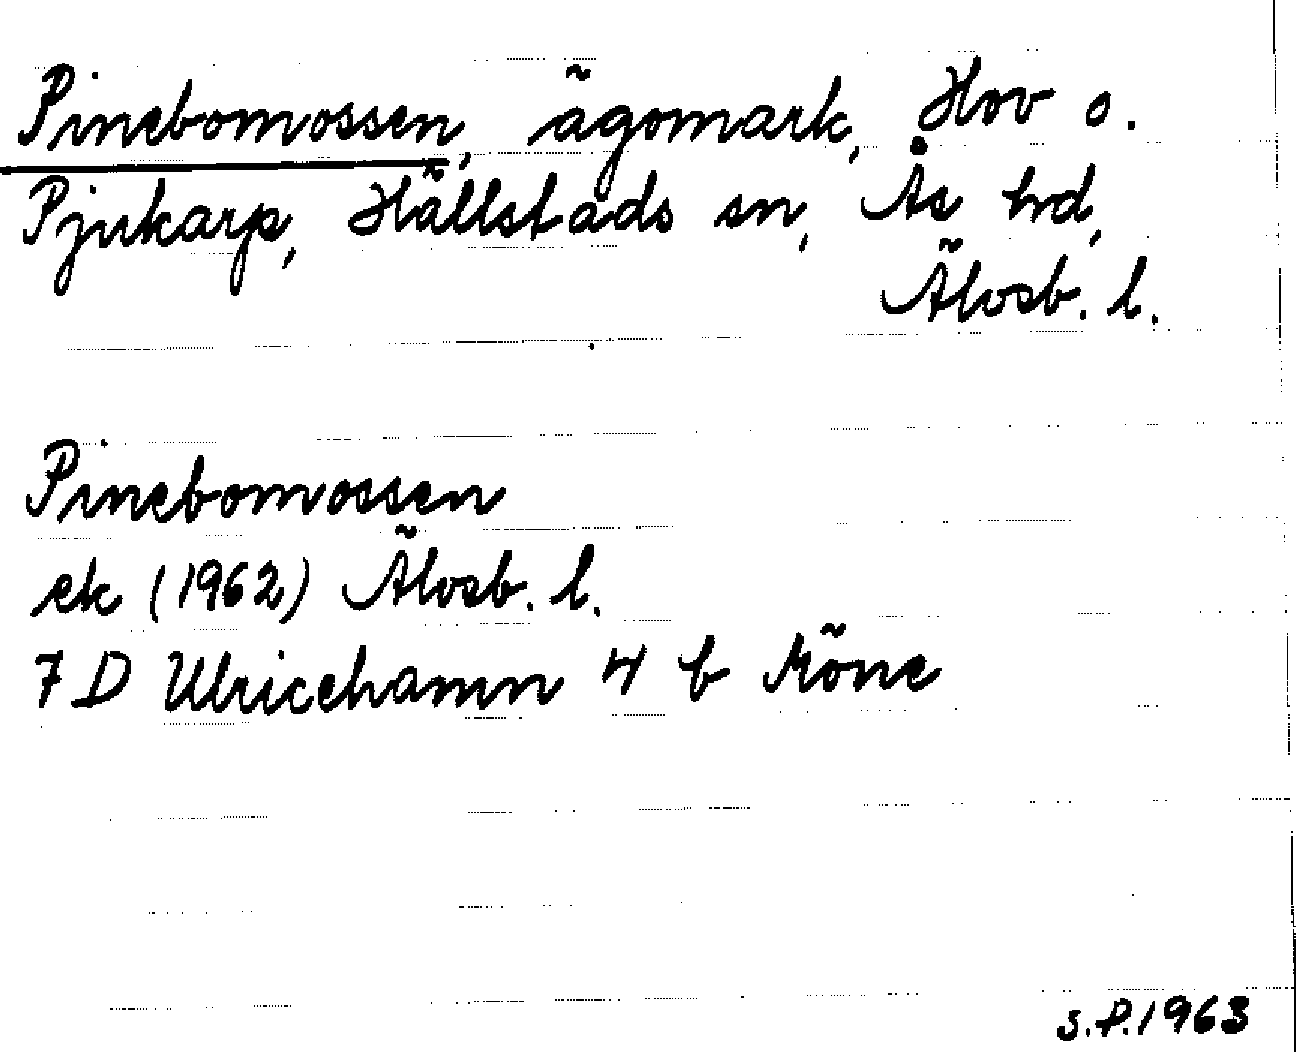 Pinebomossen, ägomark, Hov o.
Pjukarp, Hällstads sn, Ås hd,
Älvsb. l.
Pinebomossen
ek (1962) Älvsb. l.
7 D Ulricehamn 4 b Möne
S.P. 1963